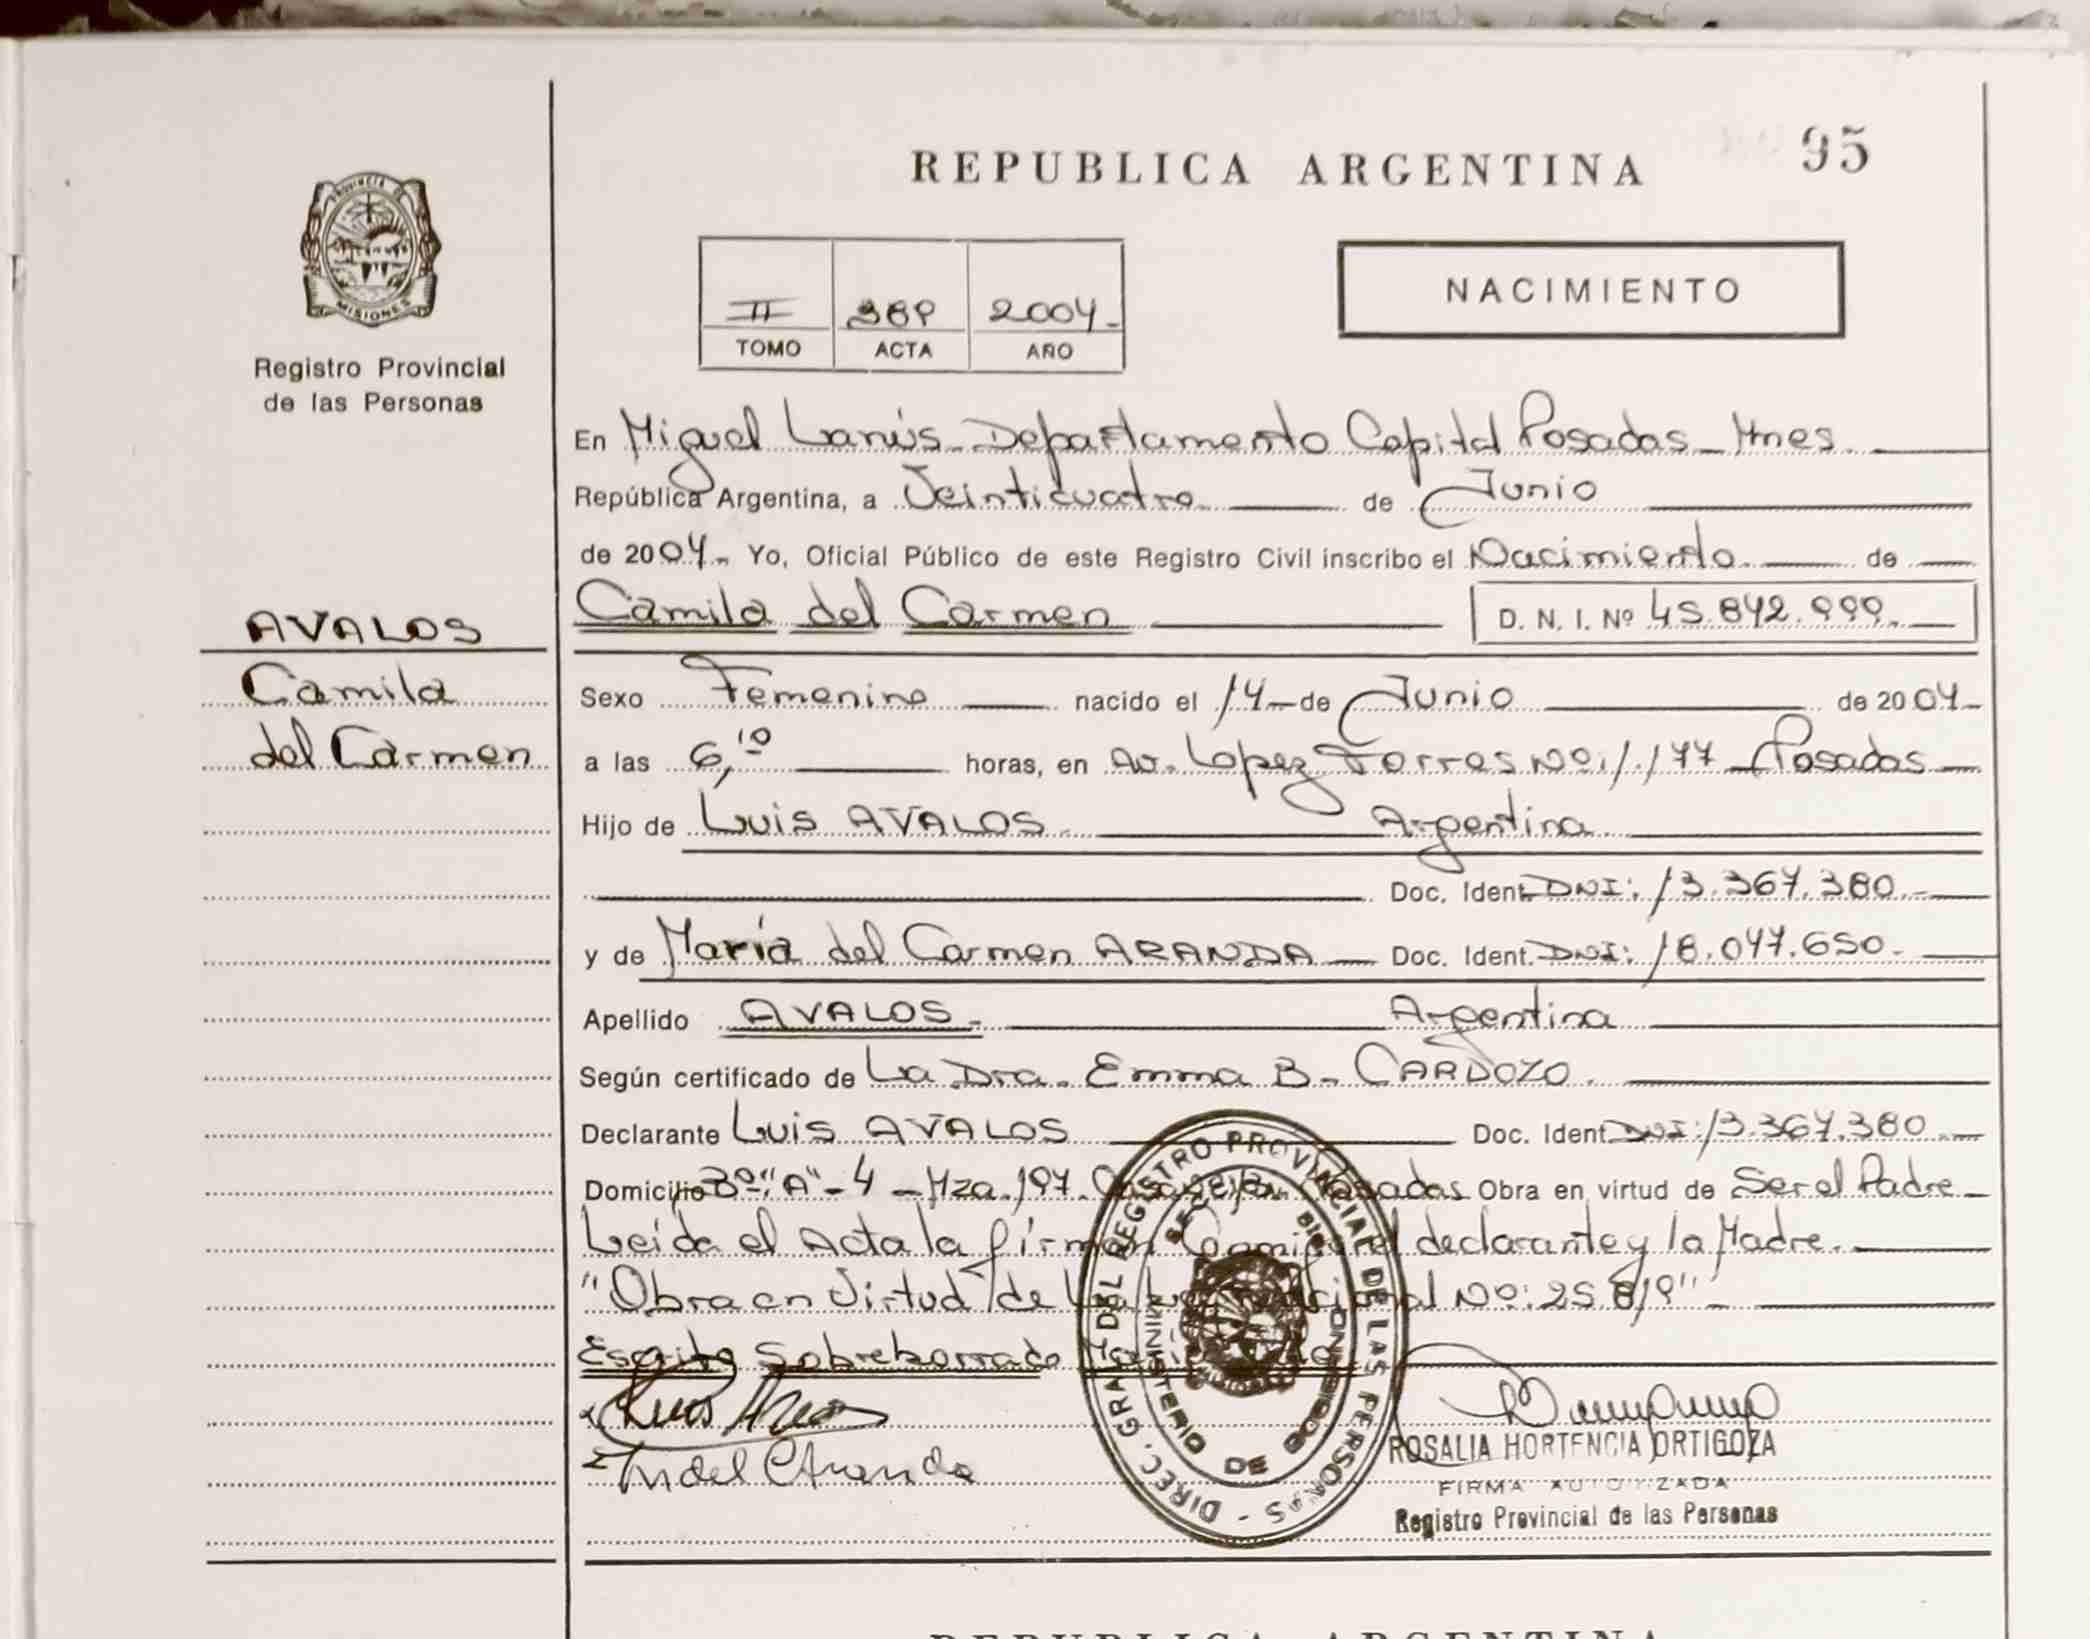 95
REPUBLICA ARGENTINA
PROVINCIA DE MISIONES
Registro Provincial
de las Personas
II 389 2004-
TOMO ACTA AÑO
NACIMIENTO
En Miguel Lanús - Departamento Capital Posadas - Mnes.
República Argentina, a Veinticuatro de Junio
de 2004.- Yo, Oficial Público de este Registro Civil inscribo el Nacimiento de
AVALOS
Camila
del Carmen
Camila del Carmen D. N. I. Nº 45.842.999.
Sexo Femenino nacido el 14 de Junio de 2004-
a las 6,10 horas, en Av. Lopez Torres Nº: 1.177 - Posadas
Hijo de Luis AVALOS. Argentina
Doc. Ident. DNI: 13.367.380.-
y de María del Carmen ARANDA Doc. Ident. DNI: 18.047.650.-
Apellido AVALOS.- Argentina
Según certificado de La Dra. Emma B. CARDOZO.
Declarante Luis AVALOS Doc. Ident. DNI: 13.367.380.-
Domicilio 3º "A" - 4 - Mza. 197. Posadas Obra en virtud de Ser el Padre
Leída el Acta la firman Conmigo el declarante y la Madre.
"Obra en Virtud de la Nº: 25.819"
Escrito Sobreborrado María
DIREC. GRAL. DEL REGISTRO PROVINCIAL DE LAS PERSONAS
ROSALIA HORTENCIA ORTIGOZA
FIRMA AUTORIZADA
Registro Provincial de las Personas
REPUBLICA ARGENTINA